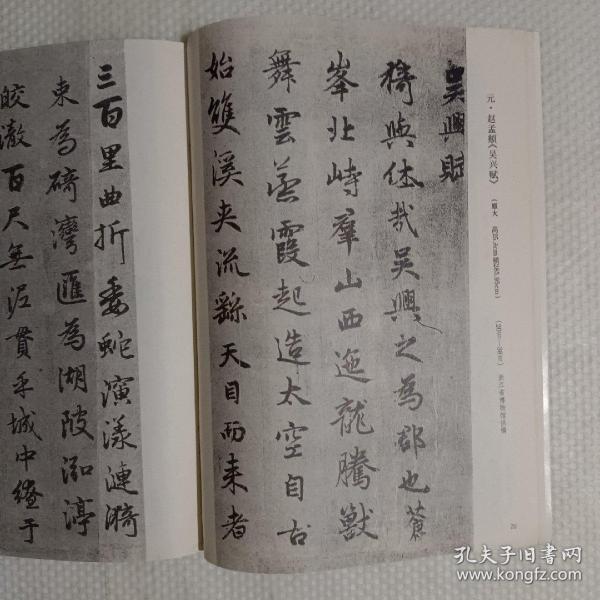 元·赵孟頫《吴兴赋》
浙江省博物馆供稿
吳興賦
猗與休哉吳興之為郡也蒼
峯北峙羣山西迤龍騰獸
舞雲蒸霞起造太空自古
始雙溪夾流繇天目而来者
三百里曲折委虵演漾漣漪
束為碕灣匯為湖陂泓渟
皎澈百尺無泥貫乎城中繚于
孔夫子旧书网
www.kongfz.com